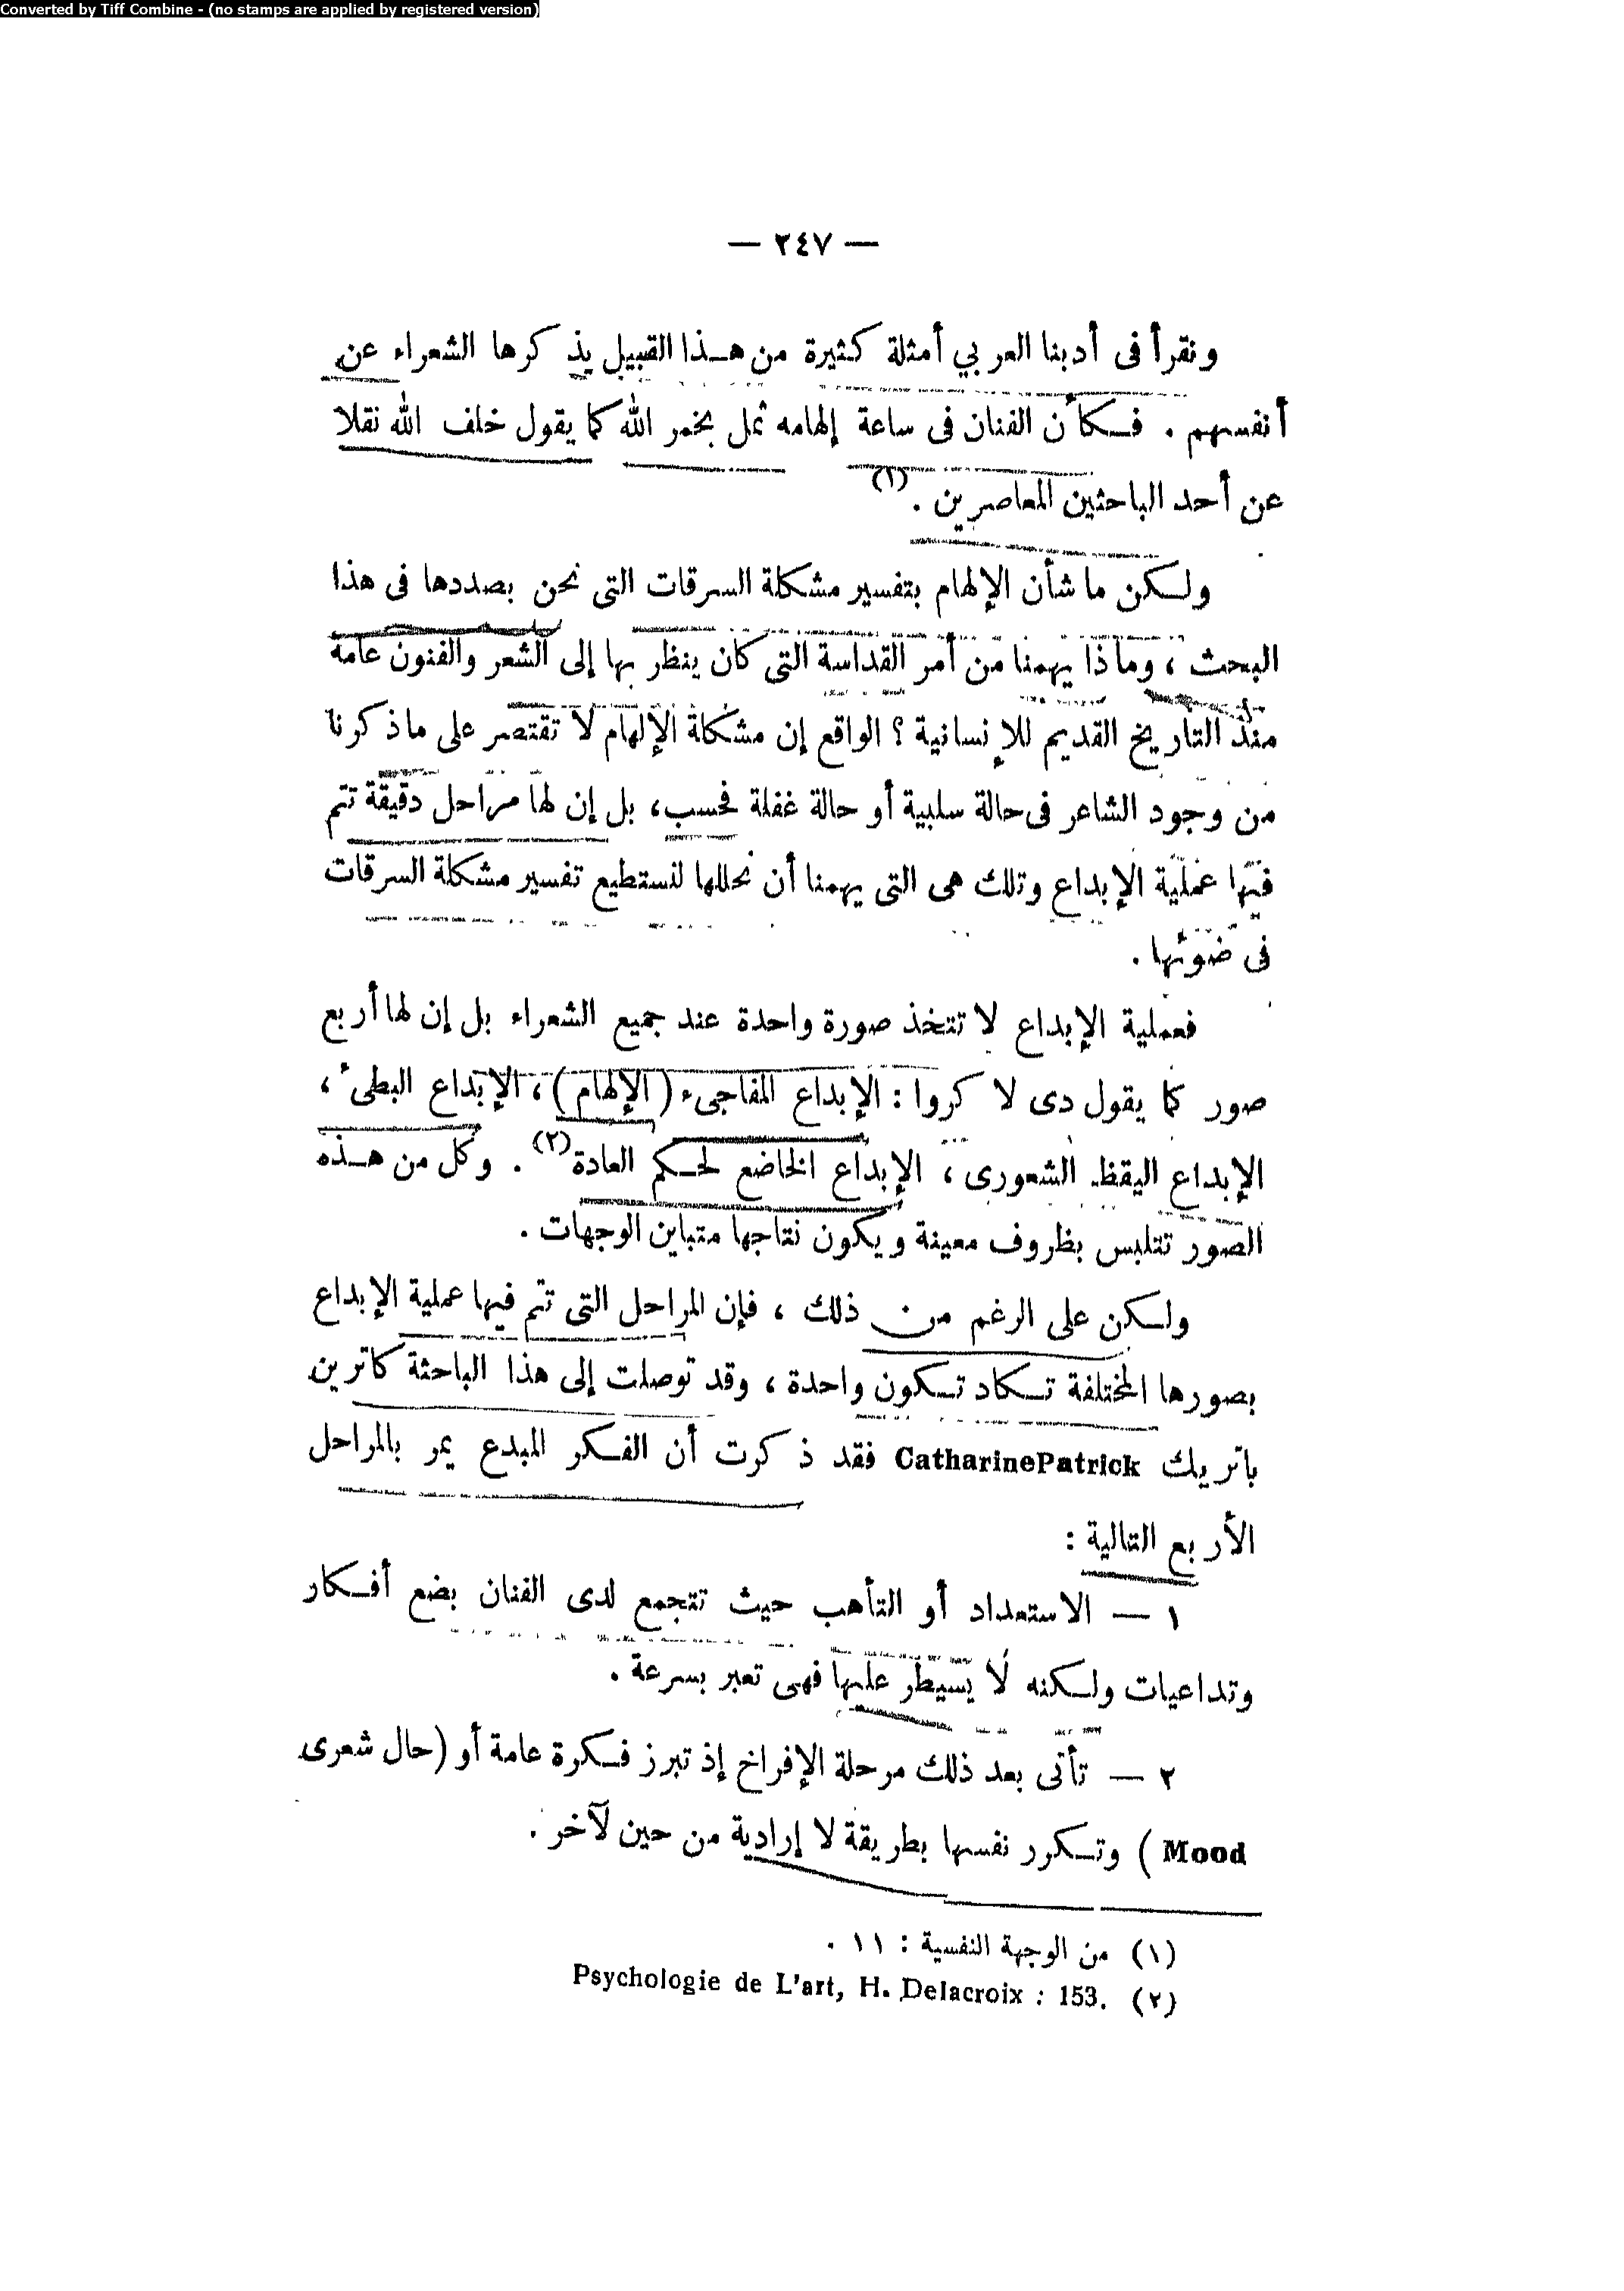 Converted by Tiff Combine - (no stamps are applied by registered version)
— ٢٤٧ —
ونقرأ فى أدبنا العربي أمثلة كثيرة من هذا القبيل يذكرها الشعراء عن
أنفسهم . فكأن الفنان فى ساعة إلهامه ثمل بخمر الله كما يقول خلف الله نقلا
عن أحد الباحثين المعاصرين (١) .
ولكن ما شأن الإلهام بتفسير مشكلة السرقات التى نحن بصددها فى هذا
البحث ، وماذا يهمنا من أمر القداسة التى كان ينظر بها إلى الشعر والفنون عامة
منذ التاريخ القديم للإنسانية ؟ الواقع إن مشكلة الإلهام لا تقتصر على ماذكرنا
من وجود الشاعر فى حالة سلبية أو حالة غفلة فحسب ، بل إن لها مراحل دقيقة تتم
فيها عملية الإبداع وتلك هى التى يهمنا أن نحللها لنستطيع تفسير مشكلة السرقات
فى ضوئها .
فعملية الإبداع لا تتخذ صورة واحدة عند جميع الشعراء بل إن لها أربع
صور كما يقول دى لا كروا : الإبداع المفاجىء (الإلهام) ، الإبداع البطىء ،
الإبداع اليقظ الشعورى ، الإبداع الخاضع لحكم العادة (٢) . وكل من هذه
الصور تتلبس بظروف معينة ويكون نتاجها متباين الوجهات .
ولكن على الرغم من ذلك ، فإن المراحل التى تتم فيها عملية الإبداع
بصورها المختلفة تكاد تكون واحدة ، وقد توصلت إلى هذا الباحثة كاترين
باتريك CatharinePatrick فقد ذكرت أن الفكر المبدع يمر بالمراحل
الأربع التالية :
١ — الاستعداد أو التأهب حيث تتجمع لدى الفنان بضع أفكار
وتداعيات ولكنه لا يسيطر عليها فهى تعبر بسرعة .
٢ — تأتى بعد ذلك مرحلة الإفراخ إذ تبرز فكرة عامة أو (حال شعرى
Mood ) وتكرر نفسها بطريقة لا إرادية من حين لآخر .
(١) من الوجهة النفسية : ١١ .
(٢) Psychologie de L'art, H. Delacroix : 153.